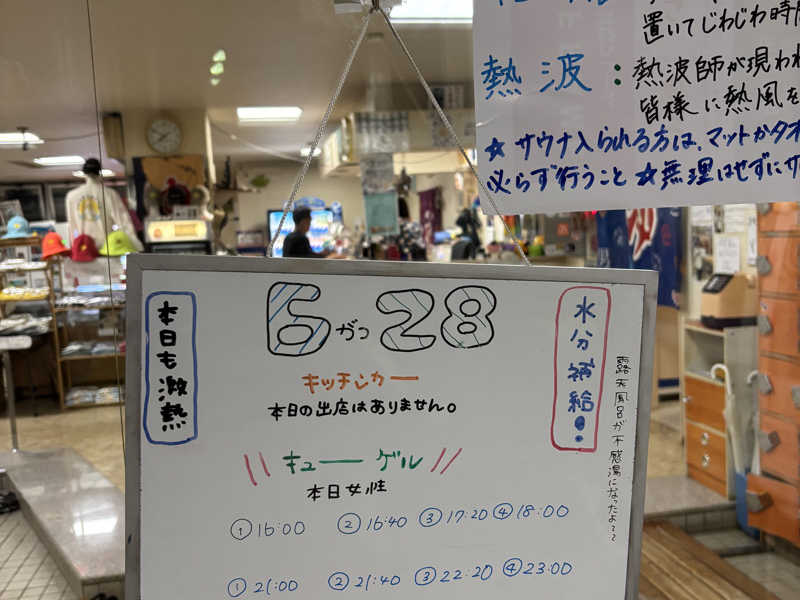 置いてじわじわ時間
熱波：熱波師が現われ
皆様に熱風を
☆サウナ入られる方は、マットかタオ
必らず行うこと☆無理はせずにサ
本日も激熱
6がつ28
水分補給！
露天風呂が不感湯になったよ〜〜
キッチンカー
本日の出店はありません。
\\ キューゲル //
本日女性
①16:00 ②16:40 ③17:20 ④18:00
①21:00 ②21:40 ③22:20 ④23:00